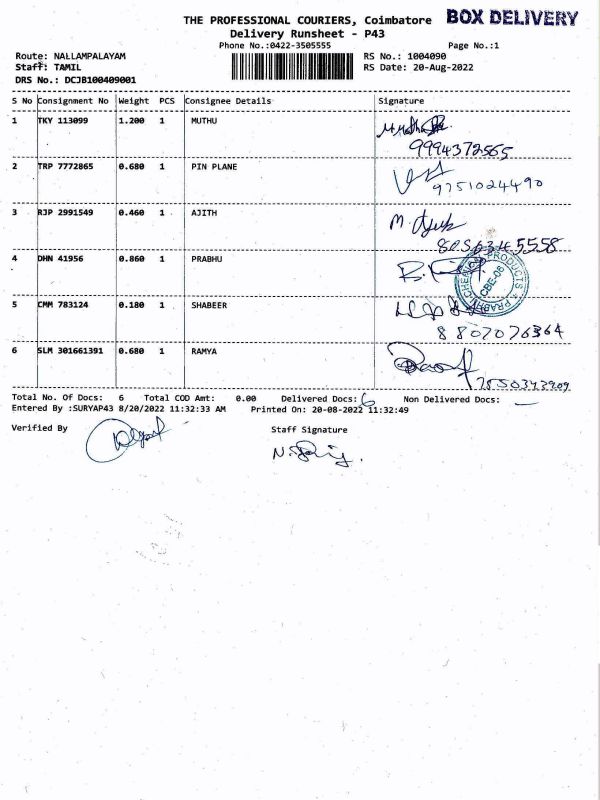 THE PROFESSIONAL COURIERS, Coimbatore BOX DELIVERY
Delivery Runsheet - P43
Phone No.:0422-3505555 Page No.:1
Route: NALLAMPALAYAM RS No.: 1004090
Staff: TAMIL RS Date: 20-Aug-2022
DRS No.: DCJB100409001
S No Consignment No Weight PCS Consignee Details Signature
1 TKY 113099 1.200 1 MUTHU
9994372565
2 TRP 7772865 0.680 1 PIN PLANE
9751024490
3 RJP 2991549 0.460 1 AJITH
4 DHN 41956 0.860 1 PRABHU
CHEMICAL PRODUCTS
CBE-06
5 CMM 783124 0.180 1 SHABEER
8807076364
6 SLM 301661391 0.680 1 RAMYA
Total No. Of Docs: 6 Total COD Amt: 0.00 Delivered Docs: 6 Non Delivered Docs: —
Entered By :SURYAP43 8/20/2022 11:32:33 AM Printed On: 20-08-2022 11:32:49
Verified By Staff Signature